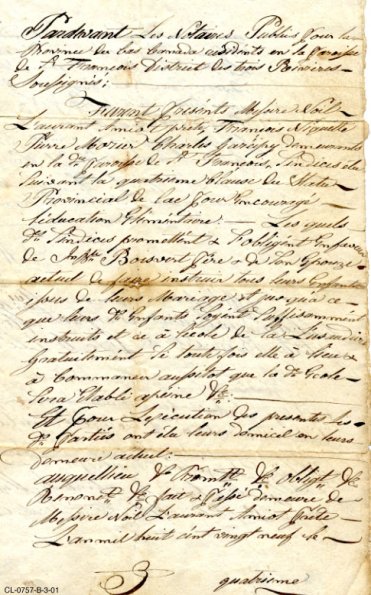 Pardevant Les Notaires Publics Pour la
Province du bas Canada residents en la Paroisse
de St. François District des trois Rivieres
Soussignés;
Furent Présents Messire Noël
Laurant Amiot Prêtre, François
Pierre Charles demeurants
en la de. Paroisse de St. François, Sindics élu
Suivant la quatrième Clause du Statu
Provincial de lac Pour Encouragé
l'éducation Elémentaire. Les quels
ds. Sindics promettent & S'obligent Envers
de Boisvert Père & de Son Epouse
actuel de instruir tous leurs Enfants
de leurs Mariage
que leurs ds. Enfants Soyent Suffisamment
instruits et ce à l'école de
gratuitement le toute fois elle à lieu
à Commancer aussitot que la de. Ecole
Sera Etablé apeine &c.
Et Pour L'exécution des presentes Les
ds. Parties ont élu leurs domicil en leurs
demeure actuel:
auquel lieu &c. &c. obligt. &c.
&c. fait & Passé demeure de
Messire Noël Laurant Amiot Prêtre
L'an mil huit cent vingt neuf le
quatrieme
CL-0757-B-3-01